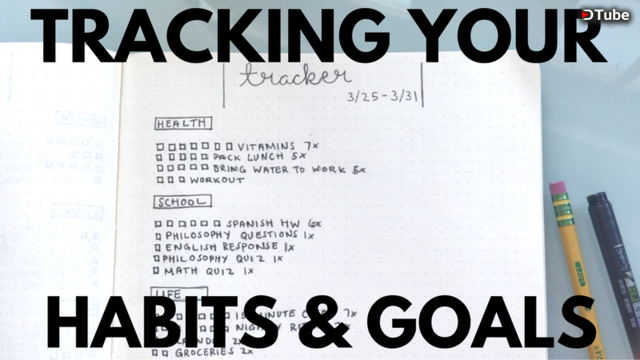 TRACKING YOUR
DTube
tracker
3/25-3/31
HEALTH
VITAMINS 7x
PACK LUNCH 5x
BRING WATER TO WORK 5x
WORKOUT
SCHOOL
SPANISH HW 6x
PHILOSOPHY QUESTIONS 1x
ENGLISH RESPONSE 1x
PHILOSOPHY QUIZ 1x
MATH QUIZ 1x
LIFE
HABITS & GOALS
GROCERIES 2x